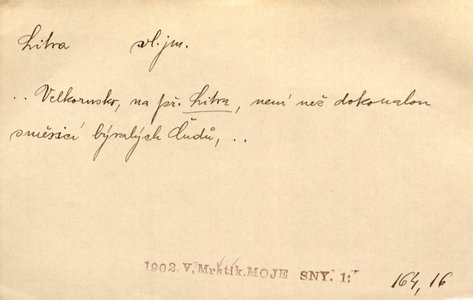 Litva vl. jm.
.. Velkorusko, na př. Litva, není než dokonalou
směsicí bývalých Čudů, ..
1902. V. Mrštík. MOJE SNY. 1:
164, 16